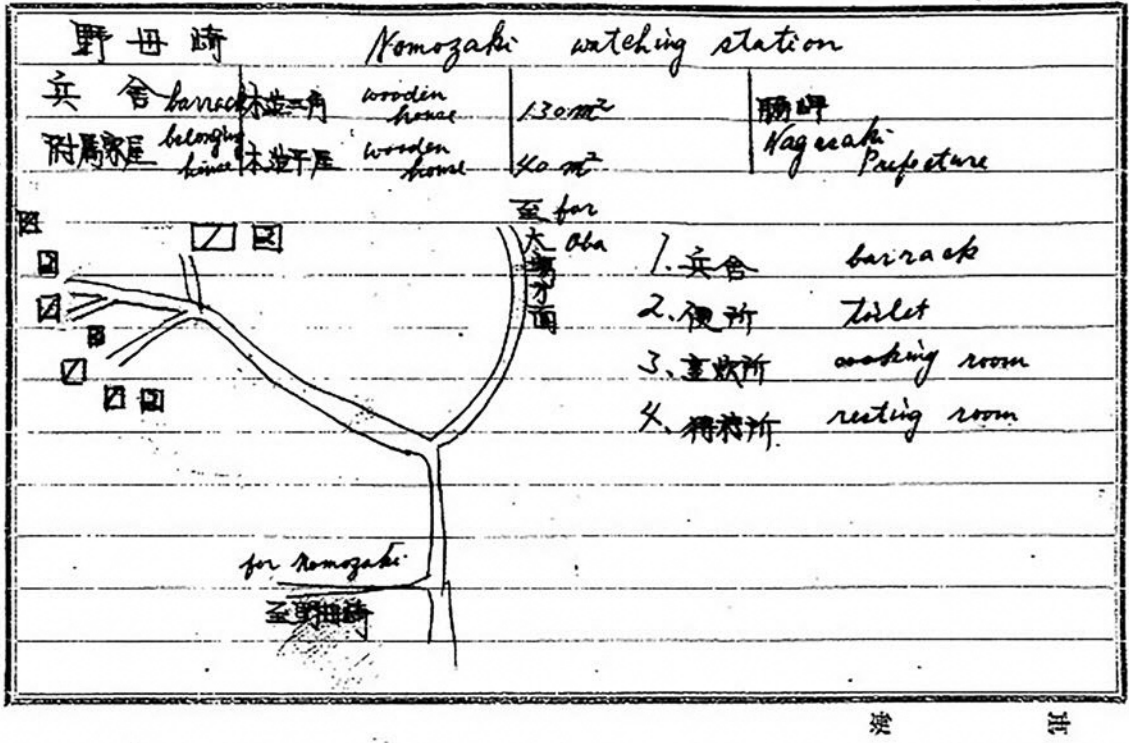 野母崎 Nomozaki watching station
兵舎 barrack 木造二角 wooden house 130m²
附属家屋 belonging house 木造平屋 wooden house 40m² Nagasaki Prefecture
至 for
大 Oba
場方面
1. 兵舎 barrack
2. 便所 toilet
3. 烹炊所 cooking room
4. 待機所 resting room
for Nomozaki
至野母崎